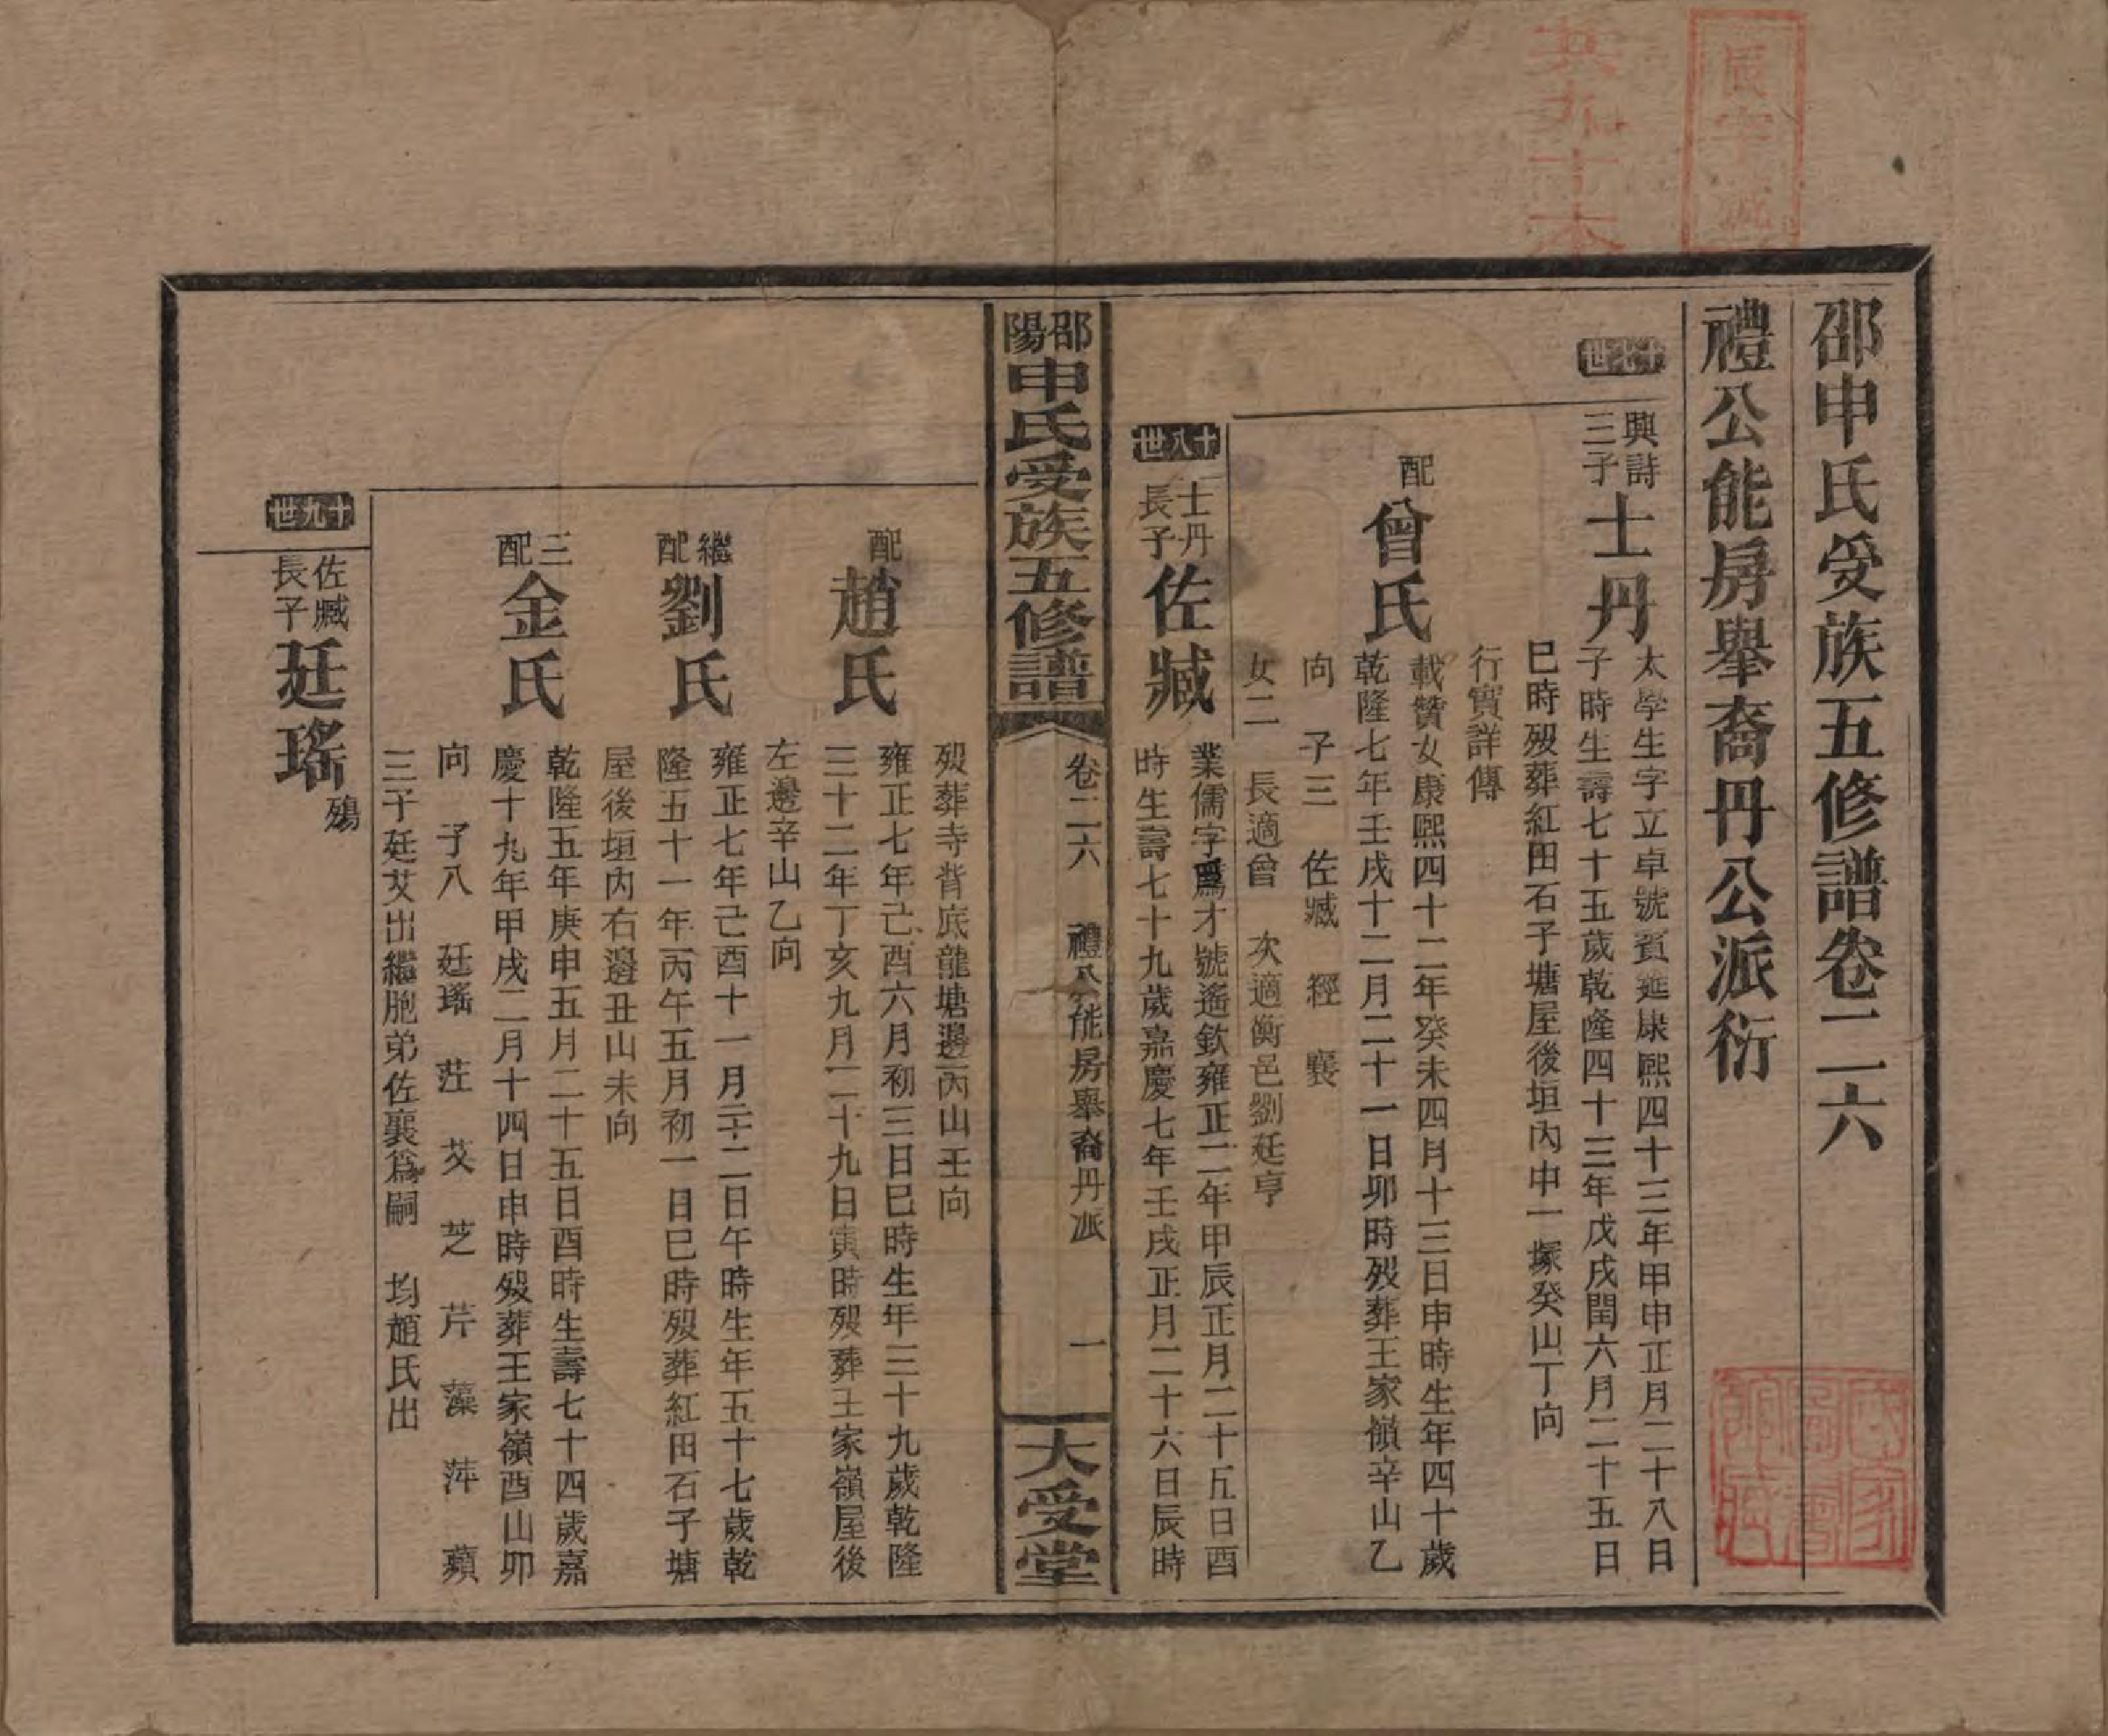 辰字派
共九十本
邵申氏受族五修譜卷二六
禮公能房舉裔丹公派衍
十七世
興詩三子
士丹
太學生字立卓號賓筵康熙四十三年甲申正月二十八日
子時生壽七十五歲乾隆四十三年戊戌閏六月二十五日
巳時歿葬紅田石子塘屋後垣內申一塚癸山丁向
行實詳傳
配曾氏
載贊女康熙四十二年癸未四月十三日申時生年四十歲
乾隆七年壬戌十二月二十一日卯時歿葬王家嶺辛山乙
向 子三 佐臧 經 襄
女二 長適曾 次適衡邑劉廷亨
十八世
士丹長子
佐臧
業儒字爲才號遙欽雍正二年甲辰正月二十五日酉
時生壽七十九歲嘉慶七年壬戌正月二十六日辰時
邵陽申氏受族五修譜
卷二六 禮公能房舉裔丹派 一
大受堂
歿葬寺背底龍塘邊丙山壬向
配趙氏
雍正七年己酉六月初三日巳時生年三十九歲乾隆
三十二年丁亥九月二十九日寅時歿葬王家嶺屋後
左邊辛山乙向
繼配劉氏
雍正七年己酉十一月三十二日午時生年五十七歲乾
隆五十一年丙午五月初一日巳時歿葬紅田石子塘
屋後垣內右邊丑山未向
三配金氏
乾隆五年庚申五月二十五日酉時生壽七十四歲嘉
慶十九年甲戌二月十四日申時歿葬王家嶺酉山卯
向 子八 廷瑤 莊 艾 芝 芹 藻 萍 蘋
三子廷艾出繼胞弟佐襄爲嗣 均趙氏出
十九世
佐臧長子
廷瑤
殤
國家圖書館藏